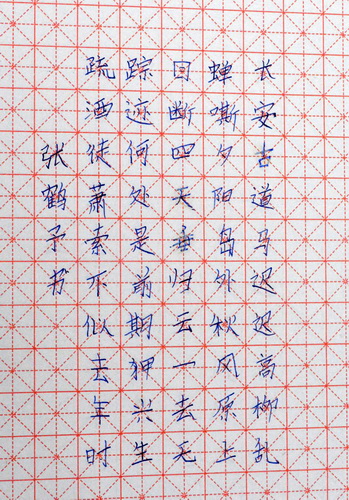 长安古道马迟迟高柳乱
蝉嘶夕阳岛外秋风原上
目断四天垂归云一去无
踪迹何处是前期狎兴生
疏酒徒萧索不似去年时
张鹤予书